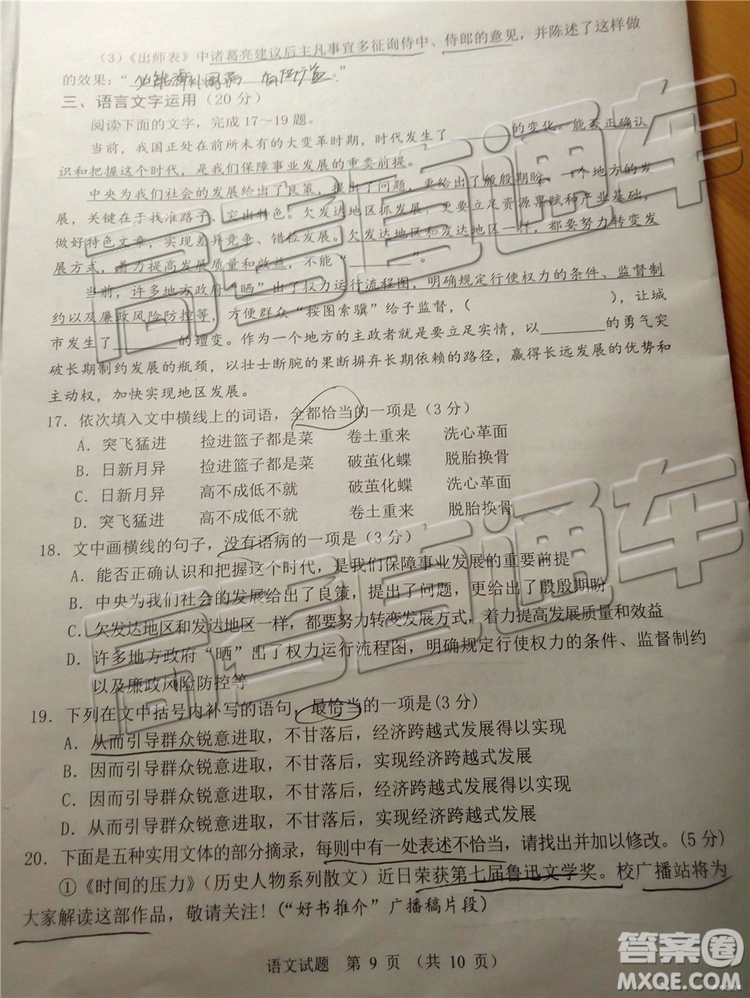 （3）《出师表》中诸葛亮建议后主凡事宜多征询侍中、侍郎的意见，并陈述了这样做
的效果：“
三、语言文字运用（20分）
阅读下面的文字，完成17～19题。
当前，我国正处在前所未有的大变革时期，时代发生了________的变化。能否正确认
识和把握这个时代，是我们保障事业发展的重要前提。
中央为我们社会的发展给出了良策，提出了问题，更给出了殷殷期盼。一个地方的发
展，关键在于找准路子、突出特色。欠发达地区抓发展，更要立足资源禀赋和产业基础，
做好特色文章，实现差异竞争、错位发展。欠发达地区和发达地区一样，都要努力转变发
展方式，着力提高发展质量和效益，不能“________”。
当前，许多地方政府“晒”出了权力运行流程图，明确规定行使权力的条件、监督制
约以及廉政风险防控等，方便群众“按图索骥”给予监督，（ ），让城
市发生了________的嬗变。作为一个地方的主政者就是要立足实情，以________的勇气突
破长期制约发展的瓶颈，以壮士断腕的果断摒弃长期依赖的路径，赢得长远发展的优势和
主动权，加快实现地区发展。
17．依次填入文中横线上的词语，全都恰当的一项是（3分）
A．突飞猛进 捡进篮子都是菜 卷土重来 洗心革面
B．日新月异 捡进篮子都是菜 破茧化蝶 脱胎换骨
C．日新月异 高不成低不就 破茧化蝶 洗心革面
D．突飞猛进 高不成低不就 卷土重来 脱胎换骨
18．文中画横线的句子，没有语病的一项是（3分）
A．能否正确认识和把握这个时代，是我们保障事业发展的重要前提
B．中央为我们社会的发展给出了良策，提出了问题，更给出了殷殷期盼
C．欠发达地区和发达地区一样，都要努力转变发展方式，着力提高发展质量和效益
D．许多地方政府“晒”出了权力运行流程图，明确规定行使权力的条件、监督制约
以及廉政风险防控等
19．下列在文中括号内补写的语句，最恰当的一项是(3分)
A．从而引导群众锐意进取，不甘落后，经济跨越式发展得以实现
B．因而引导群众锐意进取，不甘落后，实现经济跨越式发展
C．因而引导群众锐意进取，不甘落后，经济跨越式发展得以实现
D．从而引导群众锐意进取，不甘落后，实现经济跨越式发展
20．下面是五种实用文体的部分摘录，每则中有一处表述不恰当，请找出并加以修改。(5分)
①《时间的压力》（历史人物系列散文）近日荣获第七届鲁迅文学奖。校广播站将为
大家解读这部作品，敬请关注！(“好书推介”广播稿片段)
语文试题 第9页（共10页）
高考直通车
高考直通车
高考直通车
答案圈
MXQE.COM